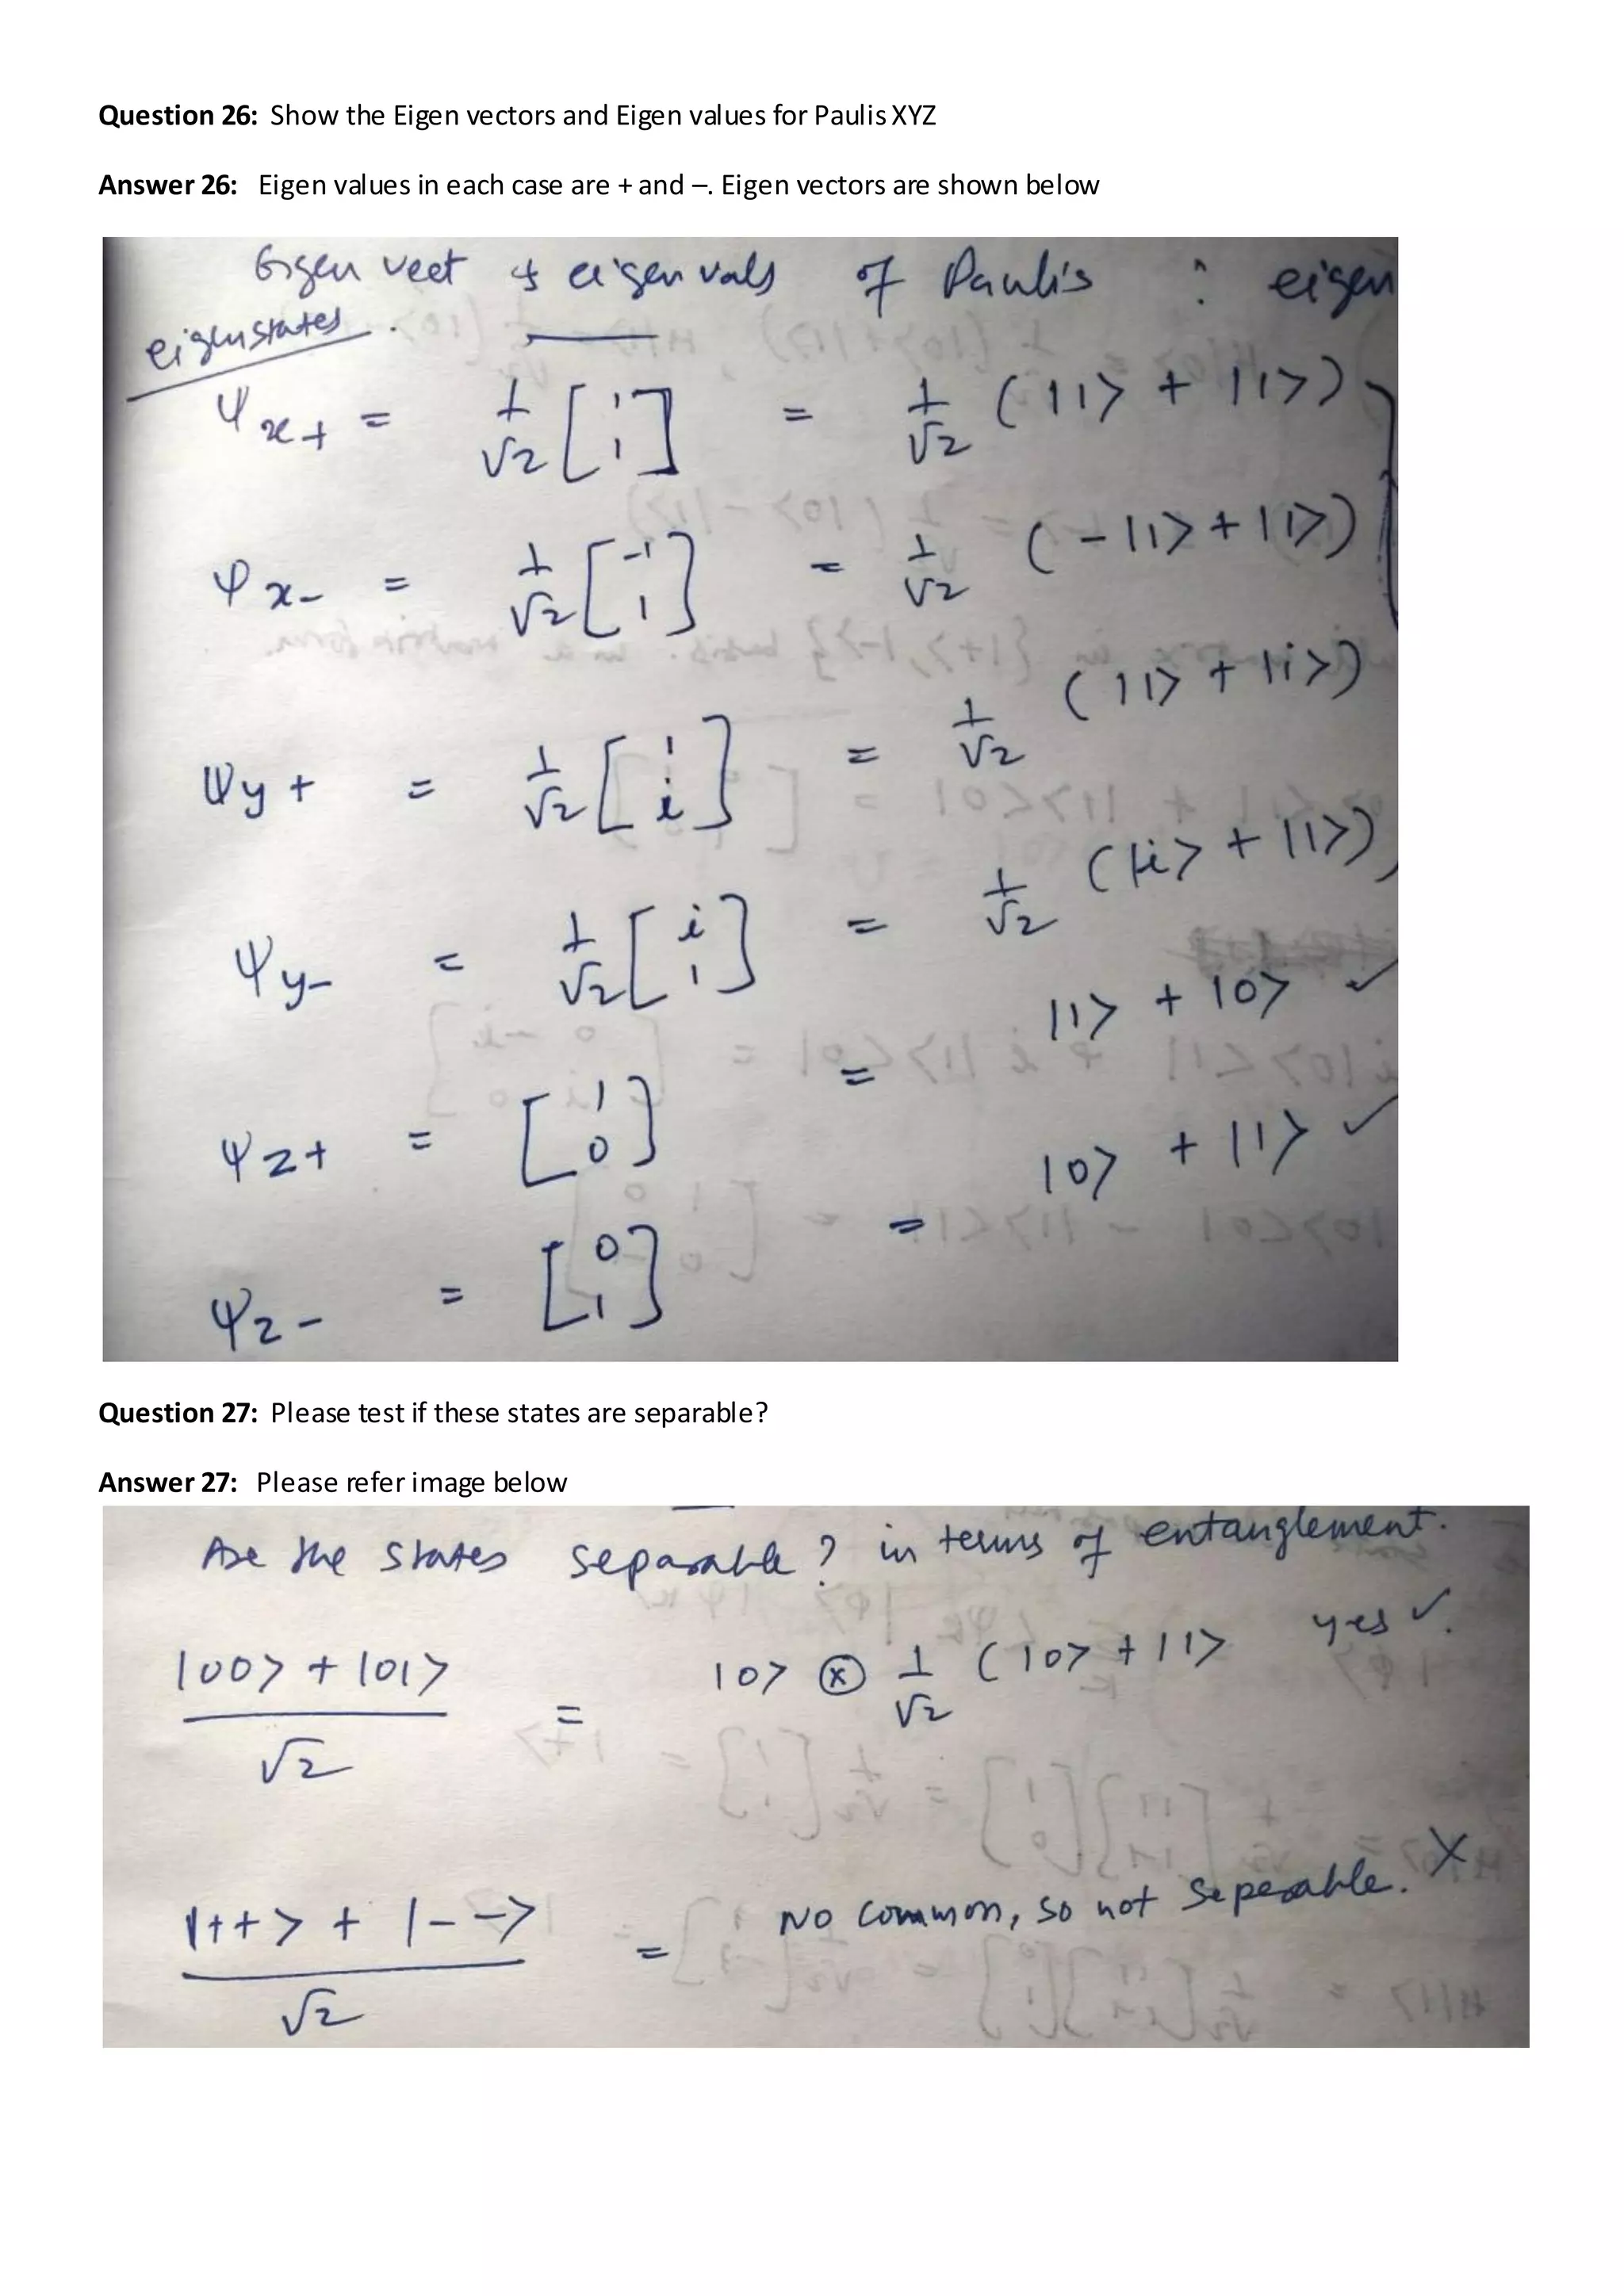 Question 26: Show the Eigen vectors and Eigen values for Paulis XYZ
Answer 26: Eigen values in each case are + and –. Eigen vectors are shown below
Eigen vect & eigen vals of Pauli's : eigen
eigenstates.
Ψx+ = 1/√2 [1 1] = 1/√2 (|1> + |1>)
Ψx- = 1/√2 [-1 1] = 1/√2 (-|1> + |1>)
Ψy+ = 1/√2 [1 i] = 1/√2 (|1> + |i>)
Ψy- = 1/√2 [i 1] = 1/√2 (|i> + |1>)
Ψz+ = [1 0] = |1> + |0> ✓
Ψz- = [0 1] = |0> + |1> ✓
Question 27: Please test if these states are separable?
Answer 27: Please refer image below
Are the states separable? in terms of entanglement.
|00> + |01> / √2 = |0> ⊗ 1/√2 (|0> + |1> yes ✓.
|++> + |--> / √2 = No common, so not seperable. X